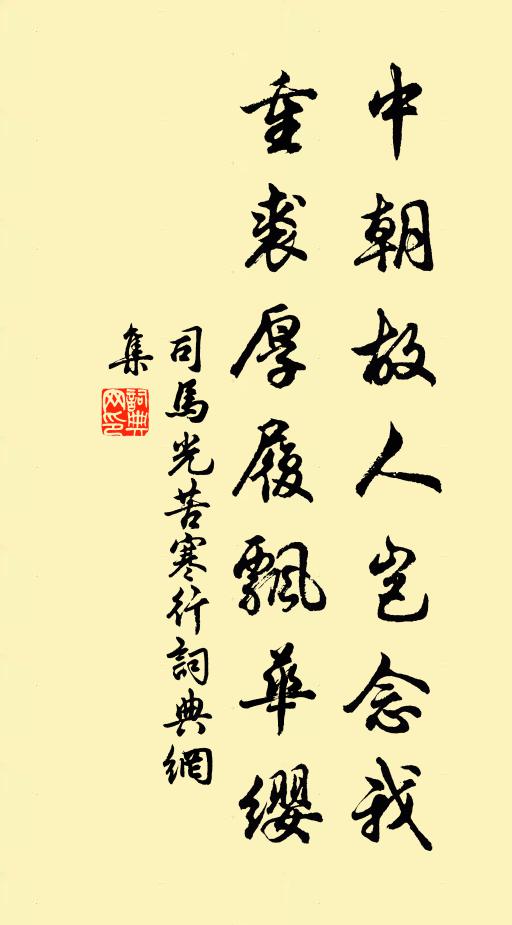 中朝故人岂念我
重裘厚履飄華纓
司馬光苦寒行詞典網
集
詞典
网印